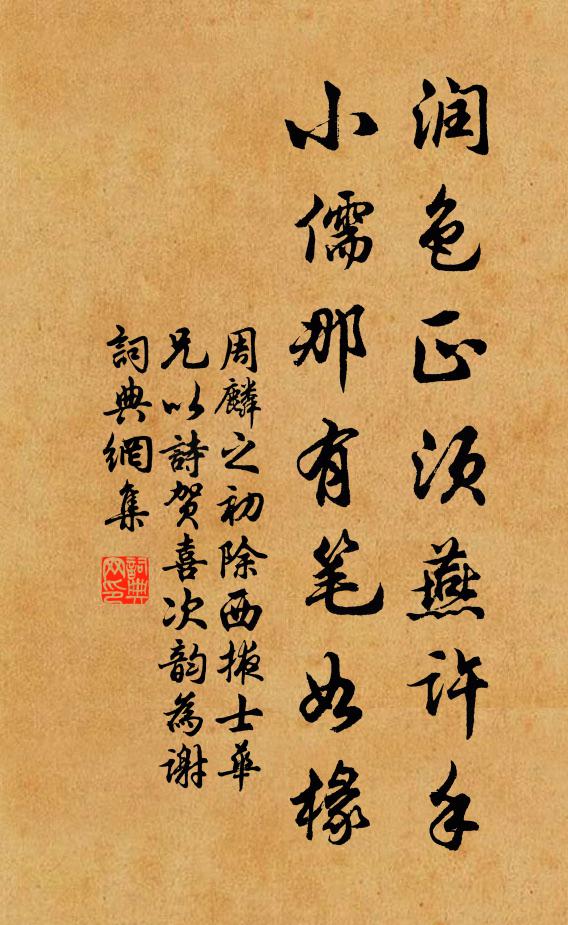 润色正须燕许手
小儒那有笔如椽
周麟之初除西掖士華
兄以詩贺喜次韵為谢
詞典網集
詞典
网印